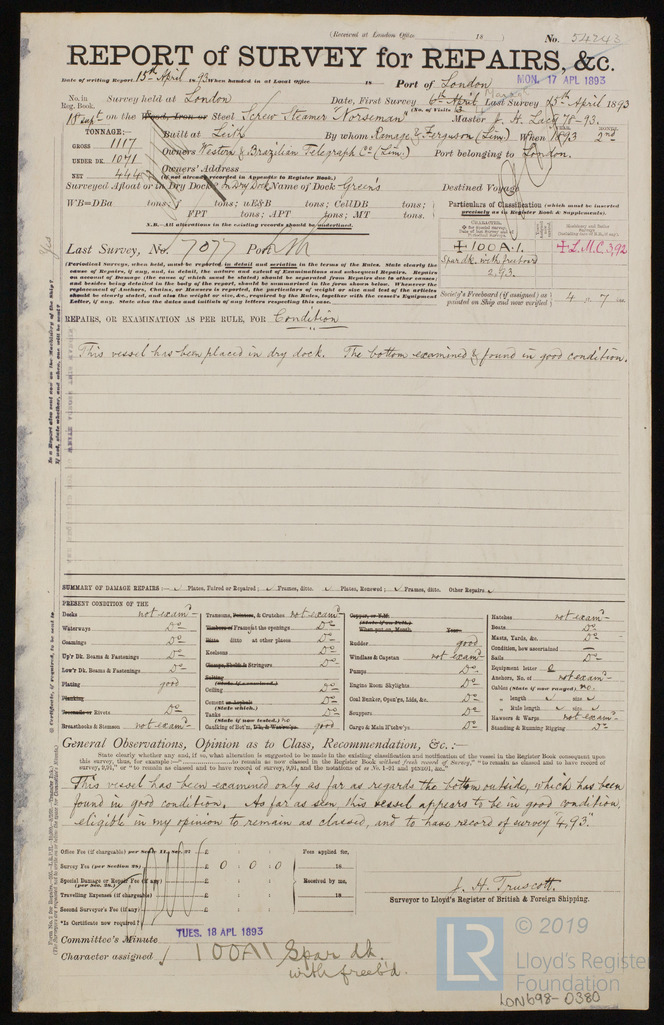 (Received at London Office 18 ) No. 54243
REPORT of SURVEY for REPAIRS, &c.
Date of writing Report 15th April 1893 When handed in at Local Office 18 Port of London
MON. 17 APL 1893
No. in Reg. Book. Survey held at London Date, First Survey 6th April Last Survey 15th April 1893
(No. of Visits 3
18 Sept on the Wood, Iron or Steel Screw Steamer "Norseman" Master J. H. Lacy 78-93.
TONNAGE:— Built at Leith By whom Ramage & Ferguson (Lim.) When 1893 2nd
GROSS 1117
Owners Western & Brazilian Telegraph Co. (Lim.) Port belonging to London.
UNDER DK. 1071
Owners' Address
NET 444 (if not already recorded in Appendix to Register Book.)
Surveyed Afloat or in Dry Dock? In Dry Dock Name of Dock Green's Destined Voyage
WB=DBa tons; f tons; uE&B tons; CellDB tons;
FPT tons; APT tons; MT tons.
N.B.—All alterations in the existing records should be underlined.
Particulars of Classification (which must be inserted precisely as in Register Book & Supplements).
Last Survey, No. 7077 Port
✠ 100A.1.
Spar dk. with freeboard
2,93.
✠ L.M.C 3,92
Society's Freeboard (if assigned) as painted on Ship and now verified 4 ft. 7 ins.
(Periodical Surveys, when held, must be reported in detail and seriatim in the terms of the Rules. State clearly the
cause of Repairs, if any, and, in detail, the nature and extent of Examinations and subsequent Repairs. Repairs
on account of Damage (the cause of which must be stated) should be separated from Repairs due to other causes;
and besides being detailed in the body of the report, should be summarised in the form shown below. Whenever the
replacement of Anchors, Chains, or Hawsers is reported, the particulars of weight or size and test of the articles
should be clearly stated, and also the weight or size, &c., required by the Rules, together with the vessel's Equipment
Letter, if any. State also the dates and initials of any letters respecting this case.
REPAIRS, OR EXAMINATION AS PER RULE, FOR Condition
This vessel has been placed in dry dock. The bottom examined & found in good condition.
SUMMARY OF DAMAGE REPAIRS:— Plates, Faired or Repaired; Frames, ditto. Plates, Renewed; Frames, ditto. Other Repairs
PRESENT CONDITION OF THE
Decks not examd
Waterways Do
Coamings Do
Up'r Dk. Beams & Fastenings Do
Low'r Dk. Beams & Fastenings Do
Plating good
Planking
Treenails or Rivets Do
Breasthooks & Stemson not examd
Transoms, Pointers, & Crutches not examd
Timbers or Frames at the openings Do
Ditto ditto at other places Do
Keelsons Do
Clamps, Shelfs & Stringers Do
Salting
(State if examined.)
Ceiling Do
Cement or Asphalt Do
(State which.)
Tanks Do
(State if now tested.) no
Caulking of Bot'm, D'k, & Waterw'ys good
Copper, or Y.M.
(State if on Felt.)
When put on, Month Year
Rudder good
Windlass & Capstan not examd
Pumps Do
Engine Room Skylights Do
Coal Bunker, Open'gs, Lids, &c. Do
Scuppers Do
Cargo & Main H'tchw'ys Do
Hatches not examd
Boats Do
Masts, Yards, &c. Do
Condition, how ascertained —
Sails Do
Equipment letter
Anchors, No. of not examd
Cables (State if now ranged) no.
" length size
" Rule length size
Hawsers & Warps not examd
Standing & Running Rigging Do
General Observations, Opinion as to Class, Recommendation, &c.:—
State clearly whether any, and if so, what alteration is suggested to be made in the existing classification and notification of the vessel in the Register Book consequent upon
This vessel has been examined only as far as regards the bottom outside, which has been
found in good condition. As far as seen, this vessel appears to be in good condition,
eligible in my opinion to remain as classed, and to have record of survey "4,93".
Office Fee (if chargeable) per Sec. 11, £ : : Fees applied for,
Survey Fee (per Section 28) £ 0 : 0 : 0 18
Special Damage or Repair Fee (if any) (per Sec. 28.) £ : : Received by me,
Travelling Expenses (if chargeable) £ : : 18
Second Surveyor's Fee (if any) £
*Is Certificate now required?
J. H. Truscott.
Surveyor to Lloyd's Register of British & Foreign Shipping.
Committee's Minute TUES. 18 APL 1893
Character assigned 100A1 Spar dk.
with freeb'd.
© 2019
LR
Lloyd's Register
Foundation
LON698-0380